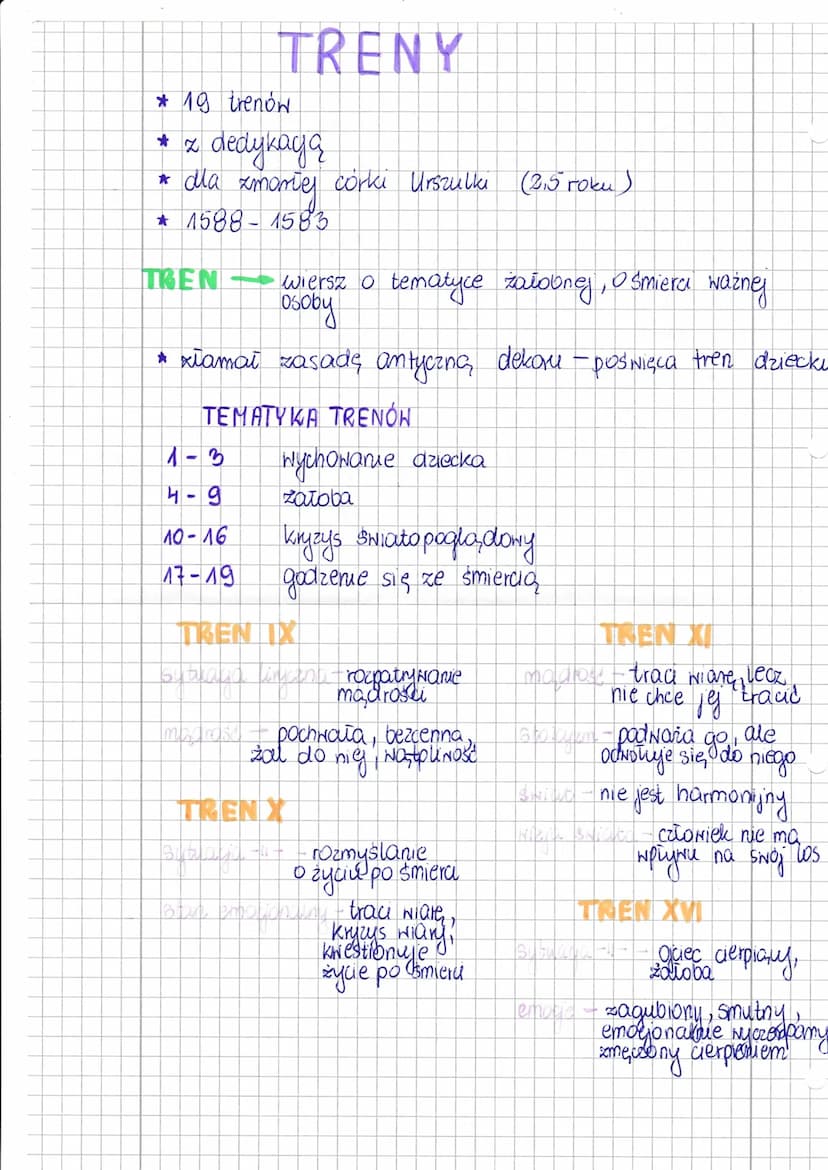 TRENY
* 19 trenów
* z dedykacją
* dla zmarłej córki Urszulki (2,5 roku)
* 1588 - 1583
TREN → wiersz o tematyce żałobnej, o śmierci ważnej
osoby
* złamał zasadę antyczną dekoru - poświęca tren dziecku
TEMATYKA TRENÓW
1 - 3 wychowanie dziecka
4 - 9 żałoba
10 - 16 kryzys światopoglądowy
17 - 19 godzenie się ze śmiercią
TREN IX
sytuacja liryczna - rozpatrywanie
mądrości
mądrość - pochwała, bezcenna,
żal do niej, wątpliwość
TREN X
sytuacja -||- - rozmyślanie
o życiu po śmierci
stan emocjonalny - traci wiarę,
kryzys wiary,
kwestionuje
życie po śmierci
TREN XI
mądrość - traci wiarę, lecz
nie chce jej tracić
stoicyzm - podważa go, ale
odwołuje się do niego
świat - nie jest harmonijny
wizja świata - człowiek nie ma
wpływu na swój los
TREN XVI
sytuacja -||- - ojciec cierpiący,
żałoba
emocje - zagubiony, smutny,
emocjonalnie wyczerpany
zmęczony cierpieniem